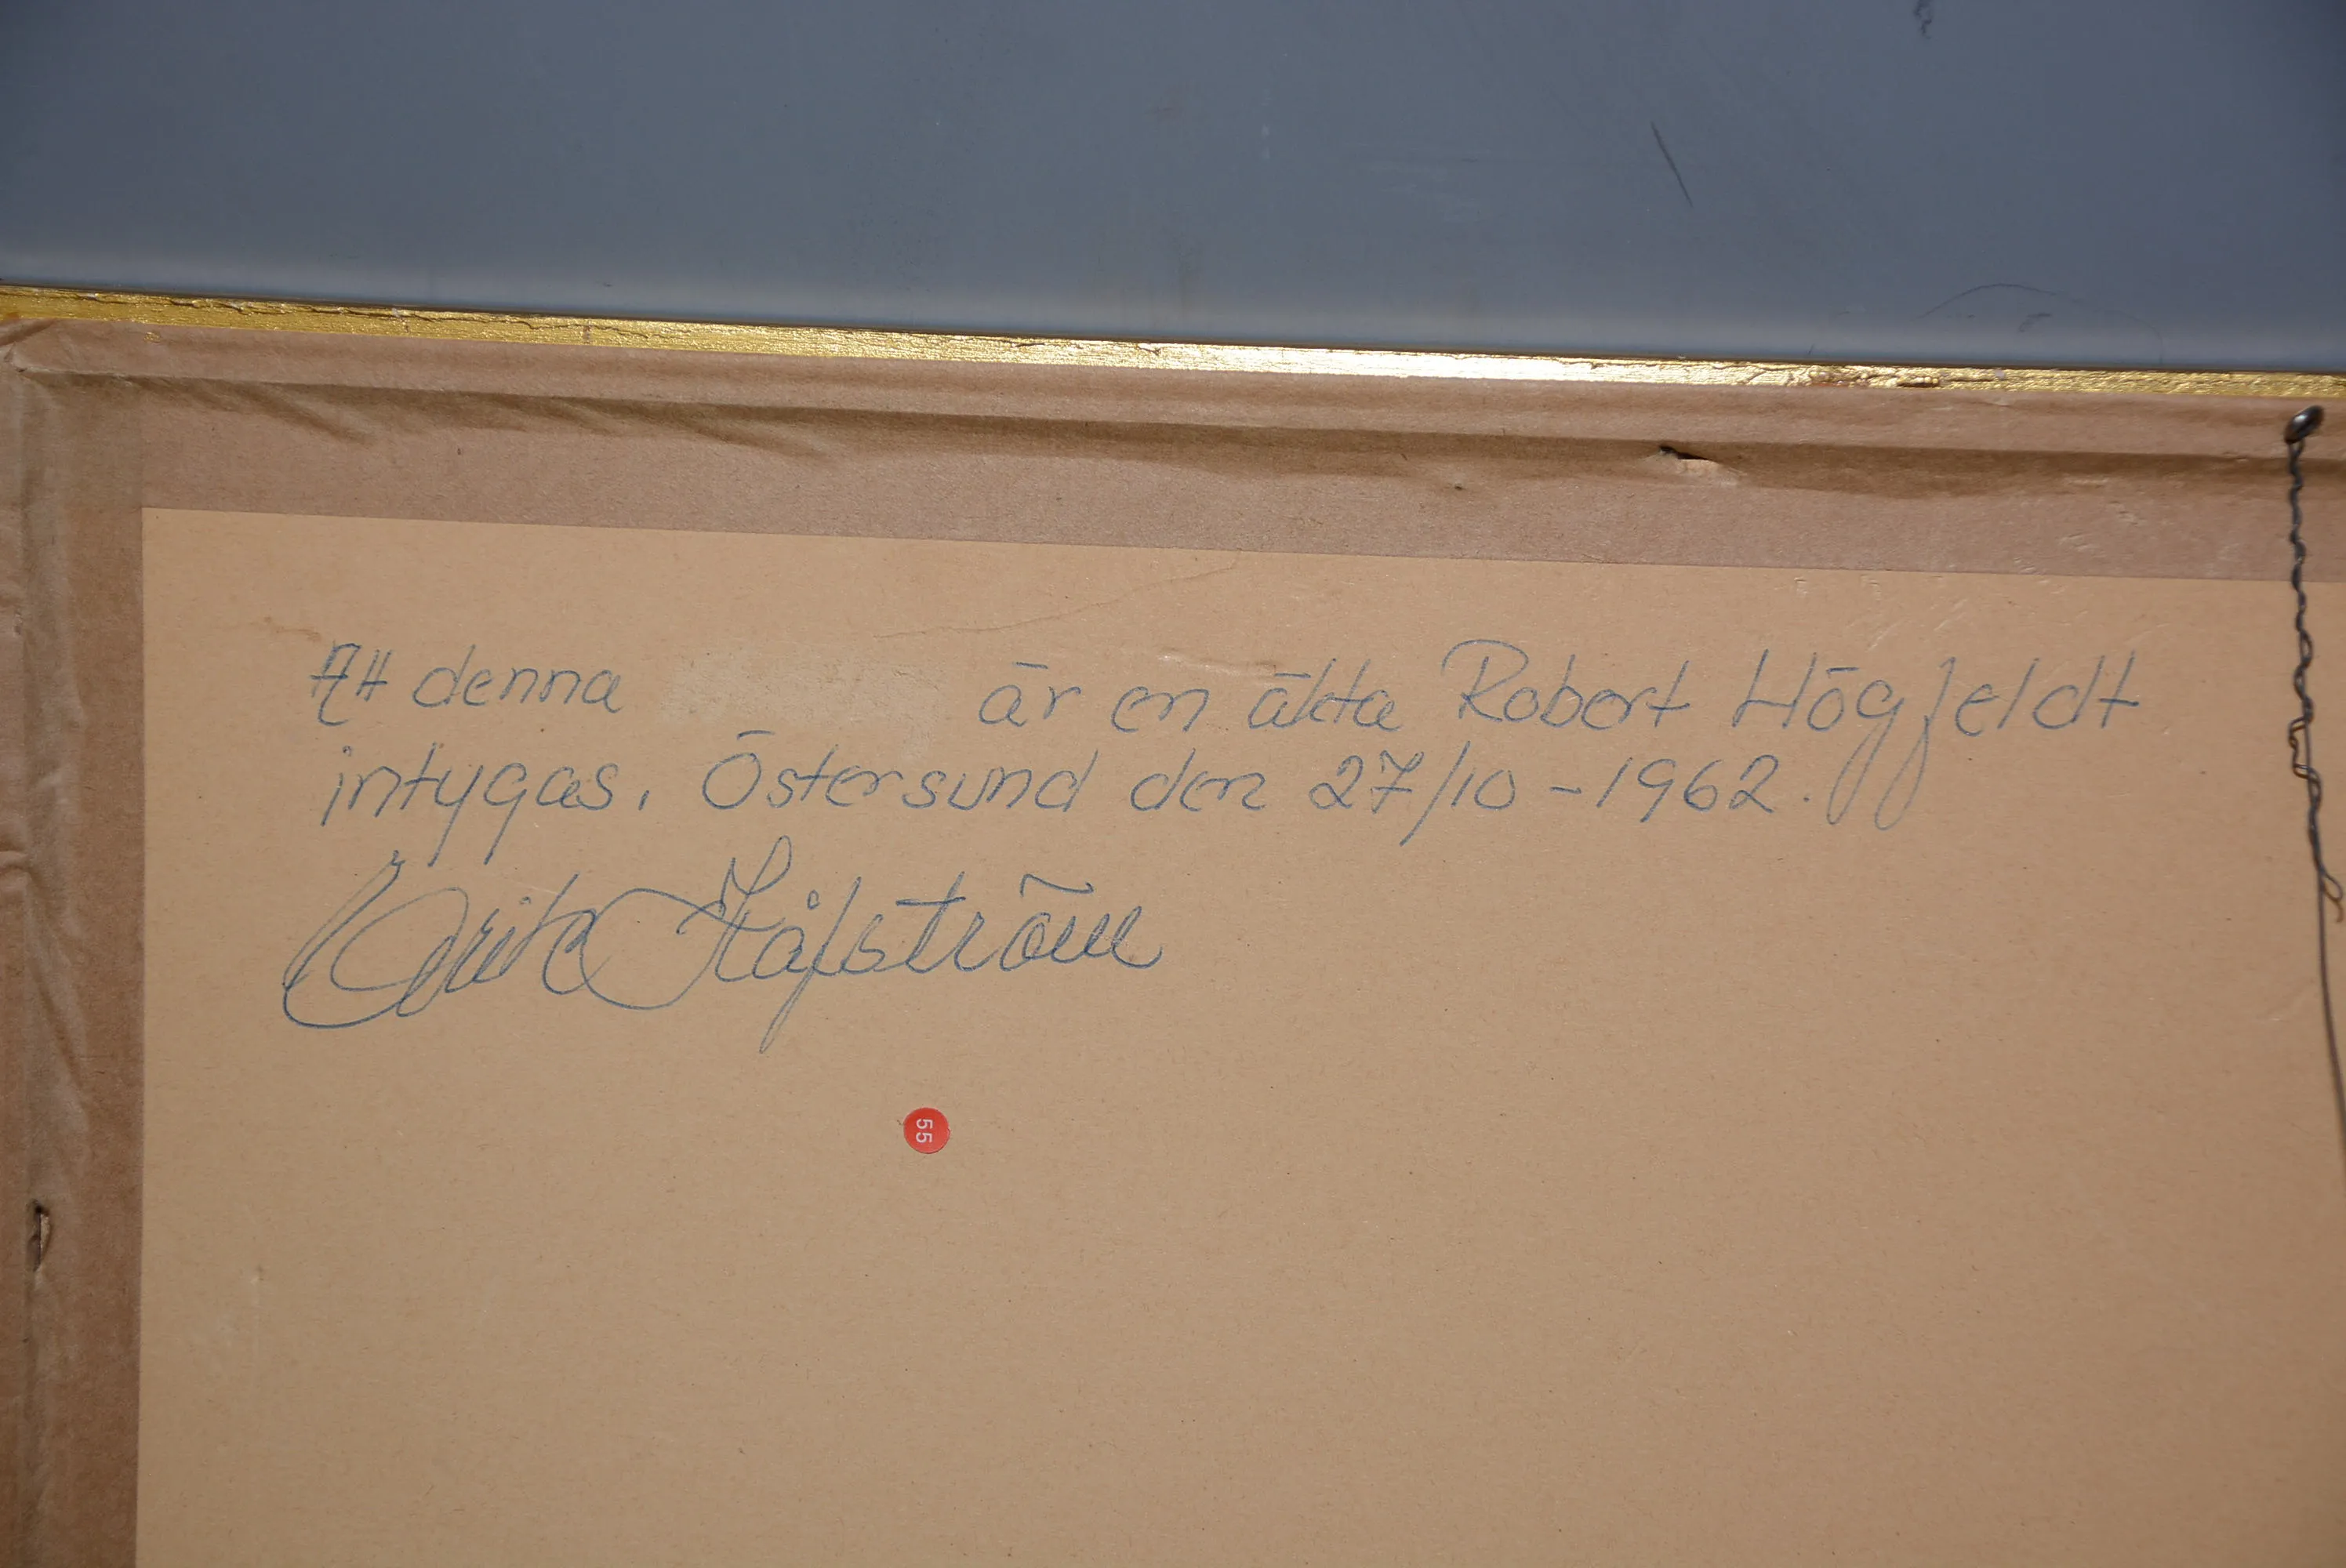 Att denna är en äkta Robert Högfeldt
intygas. Östersund den 27/10 - 1962.
Erik Håfström
55